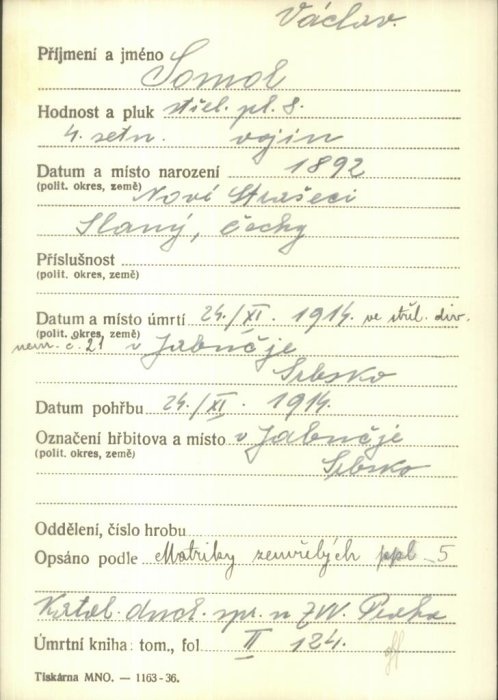 Václav.
Příjmení a jméno Somol
Hodnost a pluk střel. pl. 8.
4. setn. vojín
Datum a místo narození 1892
(polit. okres, země) Nové Strašecí
Slaný, Čechy
Příslušnost
(polit. okres, země)
Datum a místo úmrtí 24./XI. 1914. ve střel. div.
(polit. okres, země)
nem. č. 21 v Jabučje
Srbsko
Datum pohřbu 24./XI. 1914.
Označení hřbitova a místo v Jabučje
(polit. okres, země)
Srbsko
Oddělení, číslo hrobu
Opsáno podle Matriky zemřelých ppl 5
Katol. duch. spr. n ZVV. Praha
Úmrtní kniha: tom., fol II 124.
Tiskárna MNO. — 1163-36.